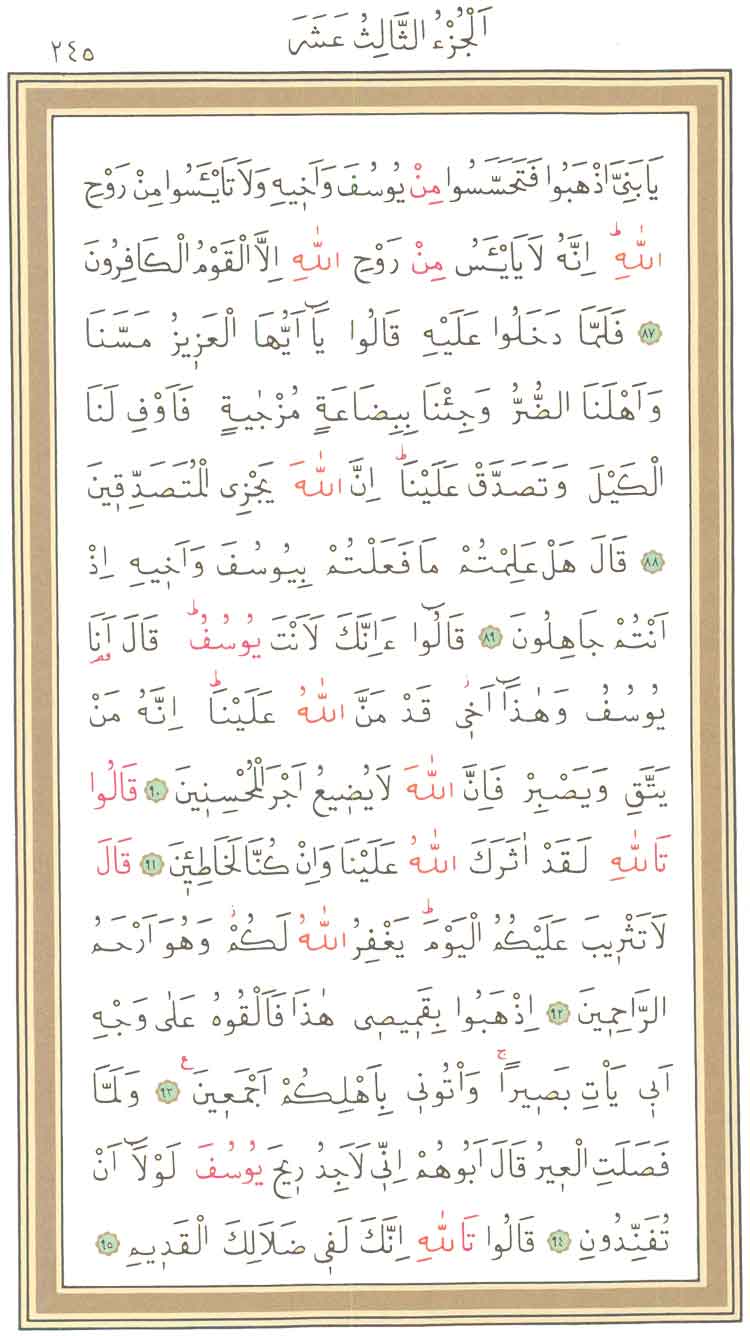 ٢٤٥
اَلْجُزْءُ الثَّالِثُ عَشَرَ
يَابَنِيَّ اذْهَبُوا فَتَحَسَّسُوا مِنْ يُوسُفَ وَاَخٖيهِ وَلَا تَايْـَٔسُوا مِنْ رَوْحِ
اللّٰهِؕ اِنَّهُ لَا يَايْـَٔسُ مِنْ رَوْحِ اللّٰهِ اِلَّا الْقَوْمُ الْكَافِرُونَ
﴿٨٧﴾ فَلَمَّا دَخَلُوا عَلَيْهِ قَالُوا يَٓا اَيُّهَا الْعَزٖيزُ مَسَّنَا
وَاَهْلَنَا الضُّرُّ وَجِئْنَا بِبِضَاعَةٍ مُزْجٰيةٍ فَاَوْفِ لَنَا
الْكَيْلَ وَتَصَدَّقْ عَلَيْنَاؕ اِنَّ اللّٰهَ يَجْزِى الْمُتَصَدِّقٖينَ
﴿٨٨﴾ قَالَ هَلْ عَلِمْتُمْ مَا فَعَلْتُمْ بِيُوسُفَ وَاَخٖيهِ اِذْ
اَنْتُمْ جَاهِلُونَ ﴿٨٩﴾ قَالُٓوا ءَاِنَّكَ لَاَنْتَ يُوسُفُؕ قَالَ اَنَا
يُوسُفُ وَهٰذَٓا اَخٖىؗ قَدْ مَنَّ اللّٰهُ عَلَيْنَاؕ اِنَّهُ مَنْ
يَتَّقِ وَيَصْبِرْ فَاِنَّ اللّٰهَ لَا يُضٖيعُ اَجْرَ الْمُحْسِنٖينَ ﴿٩٠﴾ قَالُوا
تَاللّٰهِ لَقَدْ اٰثَرَكَ اللّٰهُ عَلَيْنَا وَاِنْ كُنَّا لَخَاطِـٖٔينَ ﴿٩١﴾ قَالَ
لَا تَثْرٖيبَ عَلَيْكُمُ الْيَوْمَؕ يَغْفِرُ اللّٰهُ لَكُمْؗ وَهُوَ اَرْحَمُ
الرَّاحِمٖينَ ﴿٩٢﴾ اِذْهَبُوا بِقَمٖيصٖى هٰذَا فَاَلْقُوهُ عَلٰى وَجْهِ
اَبٖى يَاْتِ بَصٖيراًۚ وَاْتُونٖى بِاَهْلِكُمْ اَجْمَعٖينَ ع ﴿٩٣﴾ وَلَمَّا
فَصَلَتِ الْعٖيرُ قَالَ اَبُوهُمْ اِنّٖى لَاَجِدُ رٖيحَ يُوسُفَ لَوْلَٓا اَنْ
تُفَنِّدُونِ ﴿٩٤﴾ قَالُوا تَاللّٰهِ اِنَّكَ لَفٖى ضَلَالِكَ الْقَدٖيمِ ﴿٩٥﴾